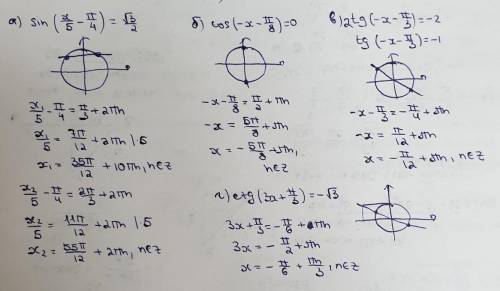 а) sin(x/5 − π/4) = √3/2
x₁/5 − π/4 = π/3 + 2πn
x₁/5 = 7π/12 + 2πn |·5
x₁ = 35π/12 + 10πn, n∈Z
x₂/5 − π/4 = 2π/3 + 2πn
x₂/5 = 11π/12 + 2πn |·5
x₂ = 55π/12 + 2πn, n∈Z
б) cos(−x − π/8) = 0
−x − π/8 = π/2 + πn
−x = 5π/8 + πn
x = −5π/8 + πn,
n∈Z
в) 2tg(−x − π/3) = −2
tg(−x − π/3) = −1
−x − π/3 = −π/4 + πn
−x = π/12 + πn
x = −π/12 + πn, n∈Z
г) ctg(3x + π/3) = −√3
3x + π/3 = −π/6 + πn
3x = −π/2 + πn
x = −π/6 + πn/3, n∈Z